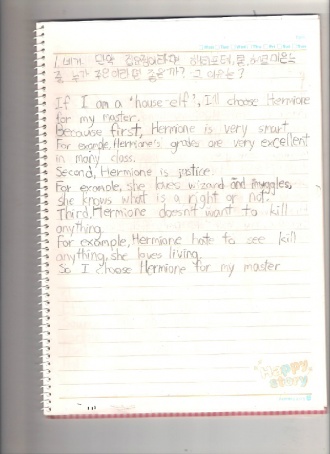 1. 네가 만약 집요정이라면 해리포터, 론, 헤르미온느
중 누가 주인이라면 좋을까? 그 이유는?
If I am a "house elf", I'll choose Hermione
for my master.
Because first, Hermione is very smart
For example, Hermione's grades are very excellent
in many class.
Second, Hermione is justice.
For example, she loves wizard and muggles,
she knows what is a right or not.
Third, Hermione doesn't want to kill
anything.
For example, Hermione hate to see kill
anything, she loves living.
So I choose Hermione for my master
Happy